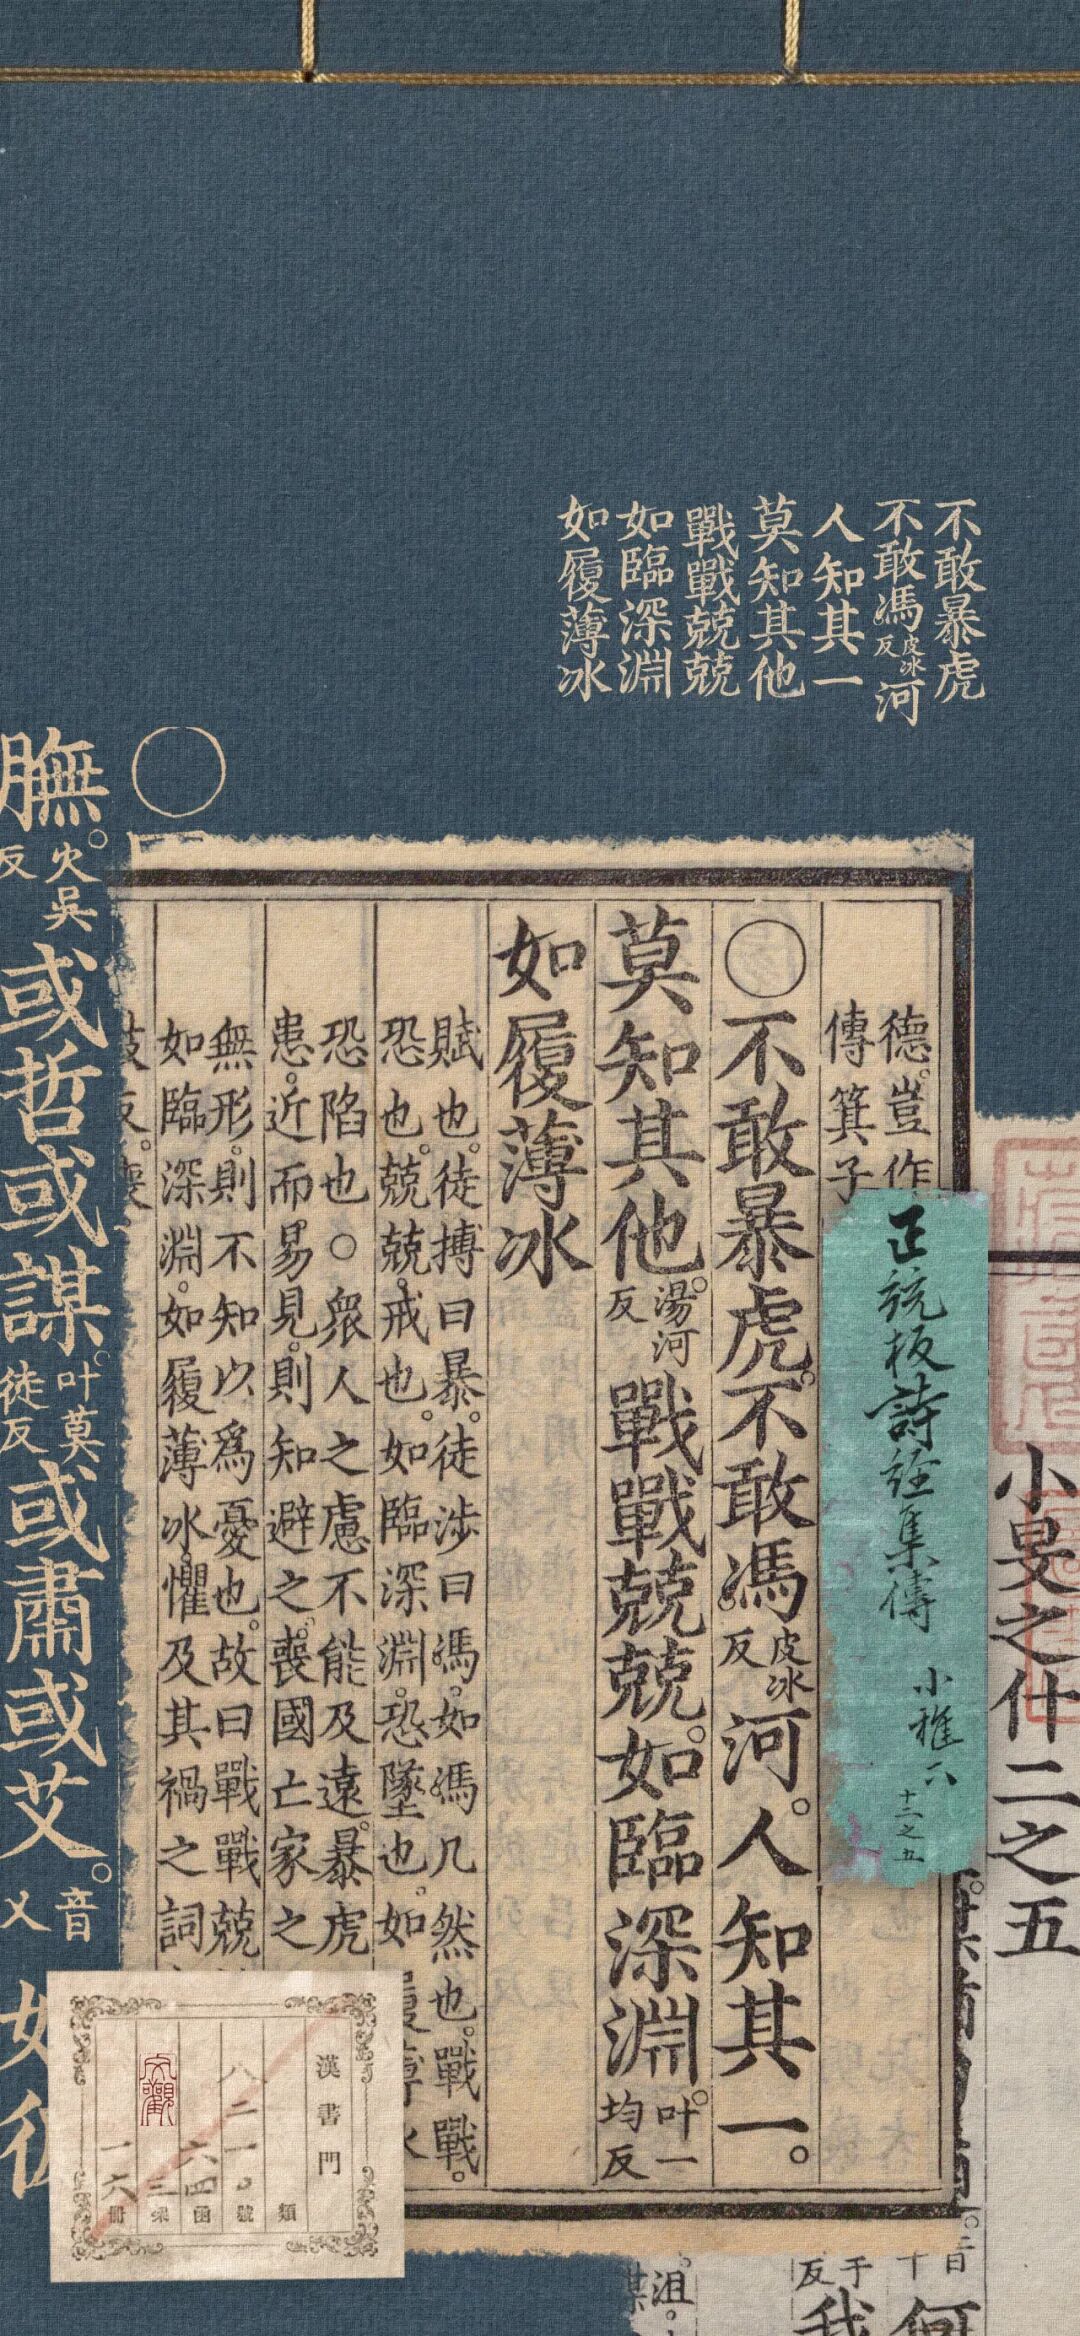 不敢暴虎
不敢馮皮冰反河
人知其一
莫知其他
戰戰兢兢
如臨深淵
如履薄冰
德豈作
傳箕子
○不敢暴虎不敢馮皮冰反河人知其一
莫知其他湯河反戰戰兢兢如臨深淵叶一均反
如履薄冰
賦也徒搏曰暴徒涉曰馮如馮几然也戰戰
恐也兢兢戒也如臨深淵恐墜也如
恐陷也○衆人之慮不能及遠暴虎
患近而易見則知避之喪國亡家之
無形則不知以爲憂也故曰戰戰兢
如臨深淵如履薄冰懼及其禍之詞
正統板詩經集傳 小雅六
十二之五
小旻之什二之五
○
膴火吳反或哲或謀叶莫徒反或肅或艾音乂
漢書門
類
八二一
號
六四
函
三
架
一六
冊
沮
于反
我
何